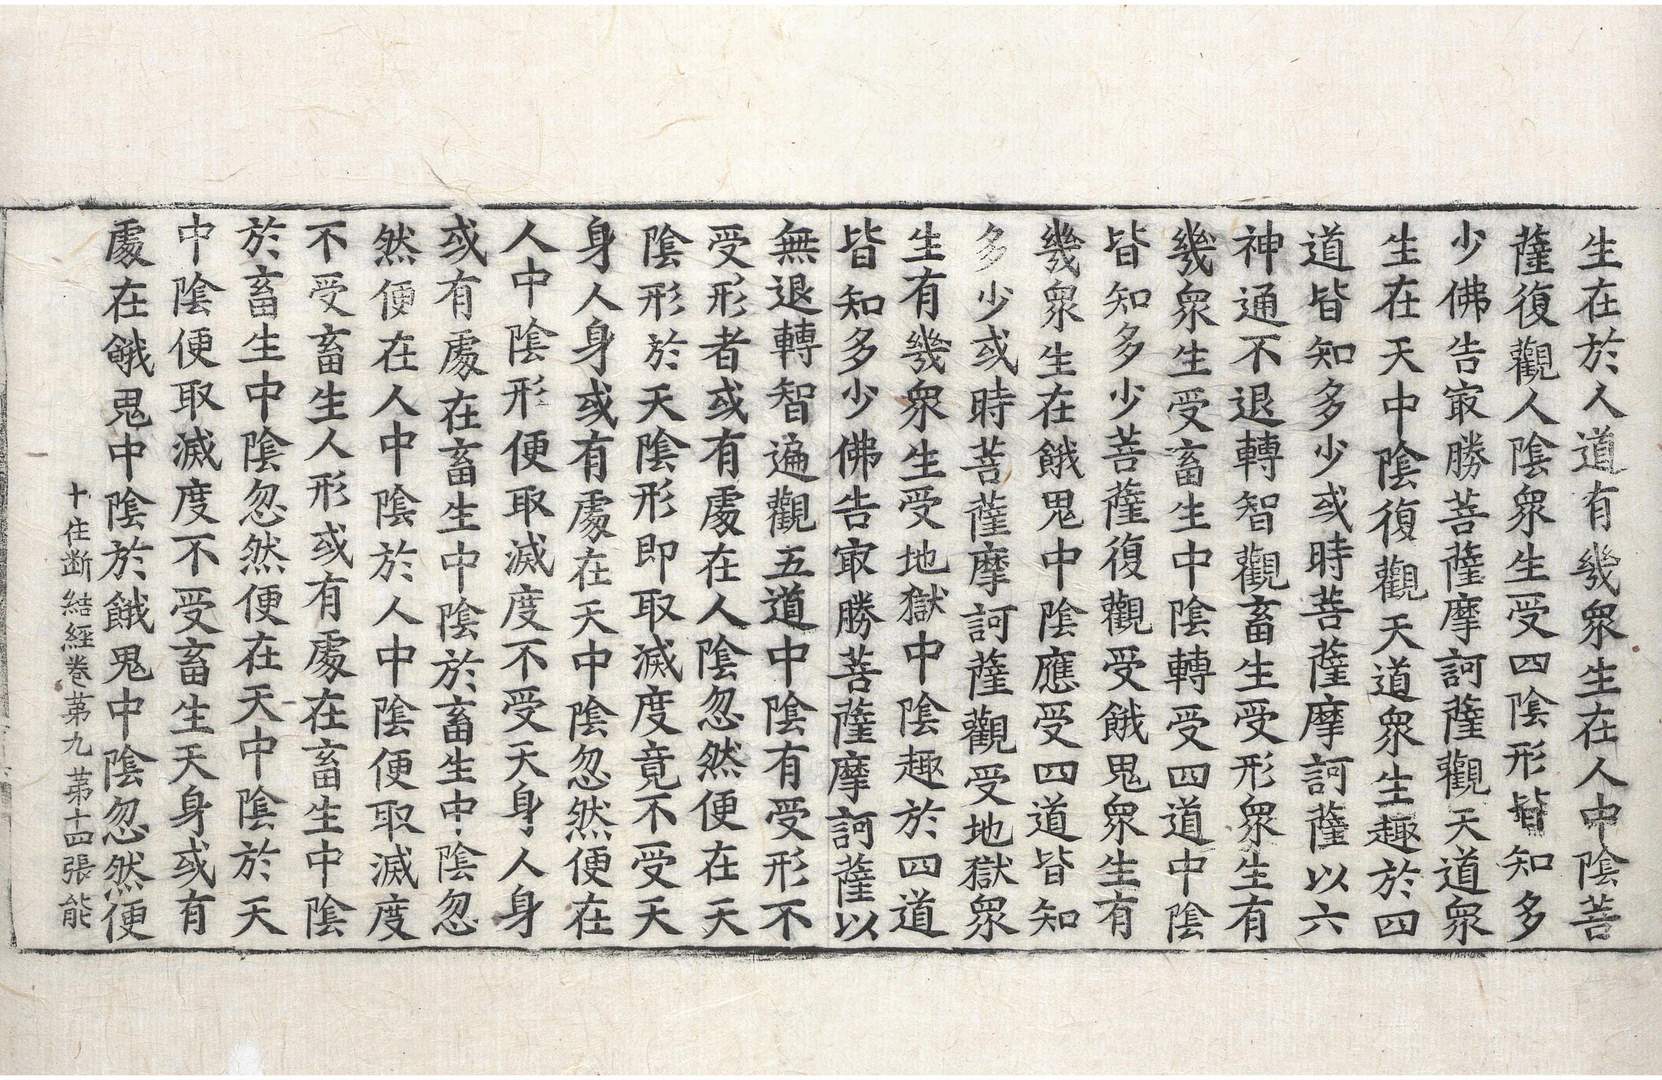 生在於人道有幾衆生在人中陰菩
薩復觀人陰衆生受四陰形皆知多
少佛告㝡勝菩薩摩訶薩觀天道衆
生在天中陰復觀天道衆生趣於四
道皆知多少或時菩薩摩訶薩以六
神通不退轉智觀畜生受形衆生有
幾衆生受畜生中陰轉受四道中陰
皆知多少菩薩復觀受餓鬼衆生有
幾衆生在餓鬼中陰應受四道皆知
多少或時菩薩摩訶薩觀受地獄衆
生有幾衆生受地獄中陰趣於四道
皆知多少佛告㝡勝菩薩摩訶薩以
無退轉智遍觀五道中陰有受形不
受形者或有處在人陰忽然便在天
陰形於天陰形即取滅度竟不受天
身人身或有處在天中陰忽然便在
人中陰形便取滅度不受天身人身
或有處在畜生中陰於畜生中陰忽
然便在人中陰於人中陰便取滅度
不受畜生人形或有處在畜生中陰
於畜生中陰忽然便在天中陰於天
中陰便取滅度不受畜生天身或有
處在餓鬼中陰於餓鬼中陰忽然便
十住斷結經卷苐九 苐十四張 能